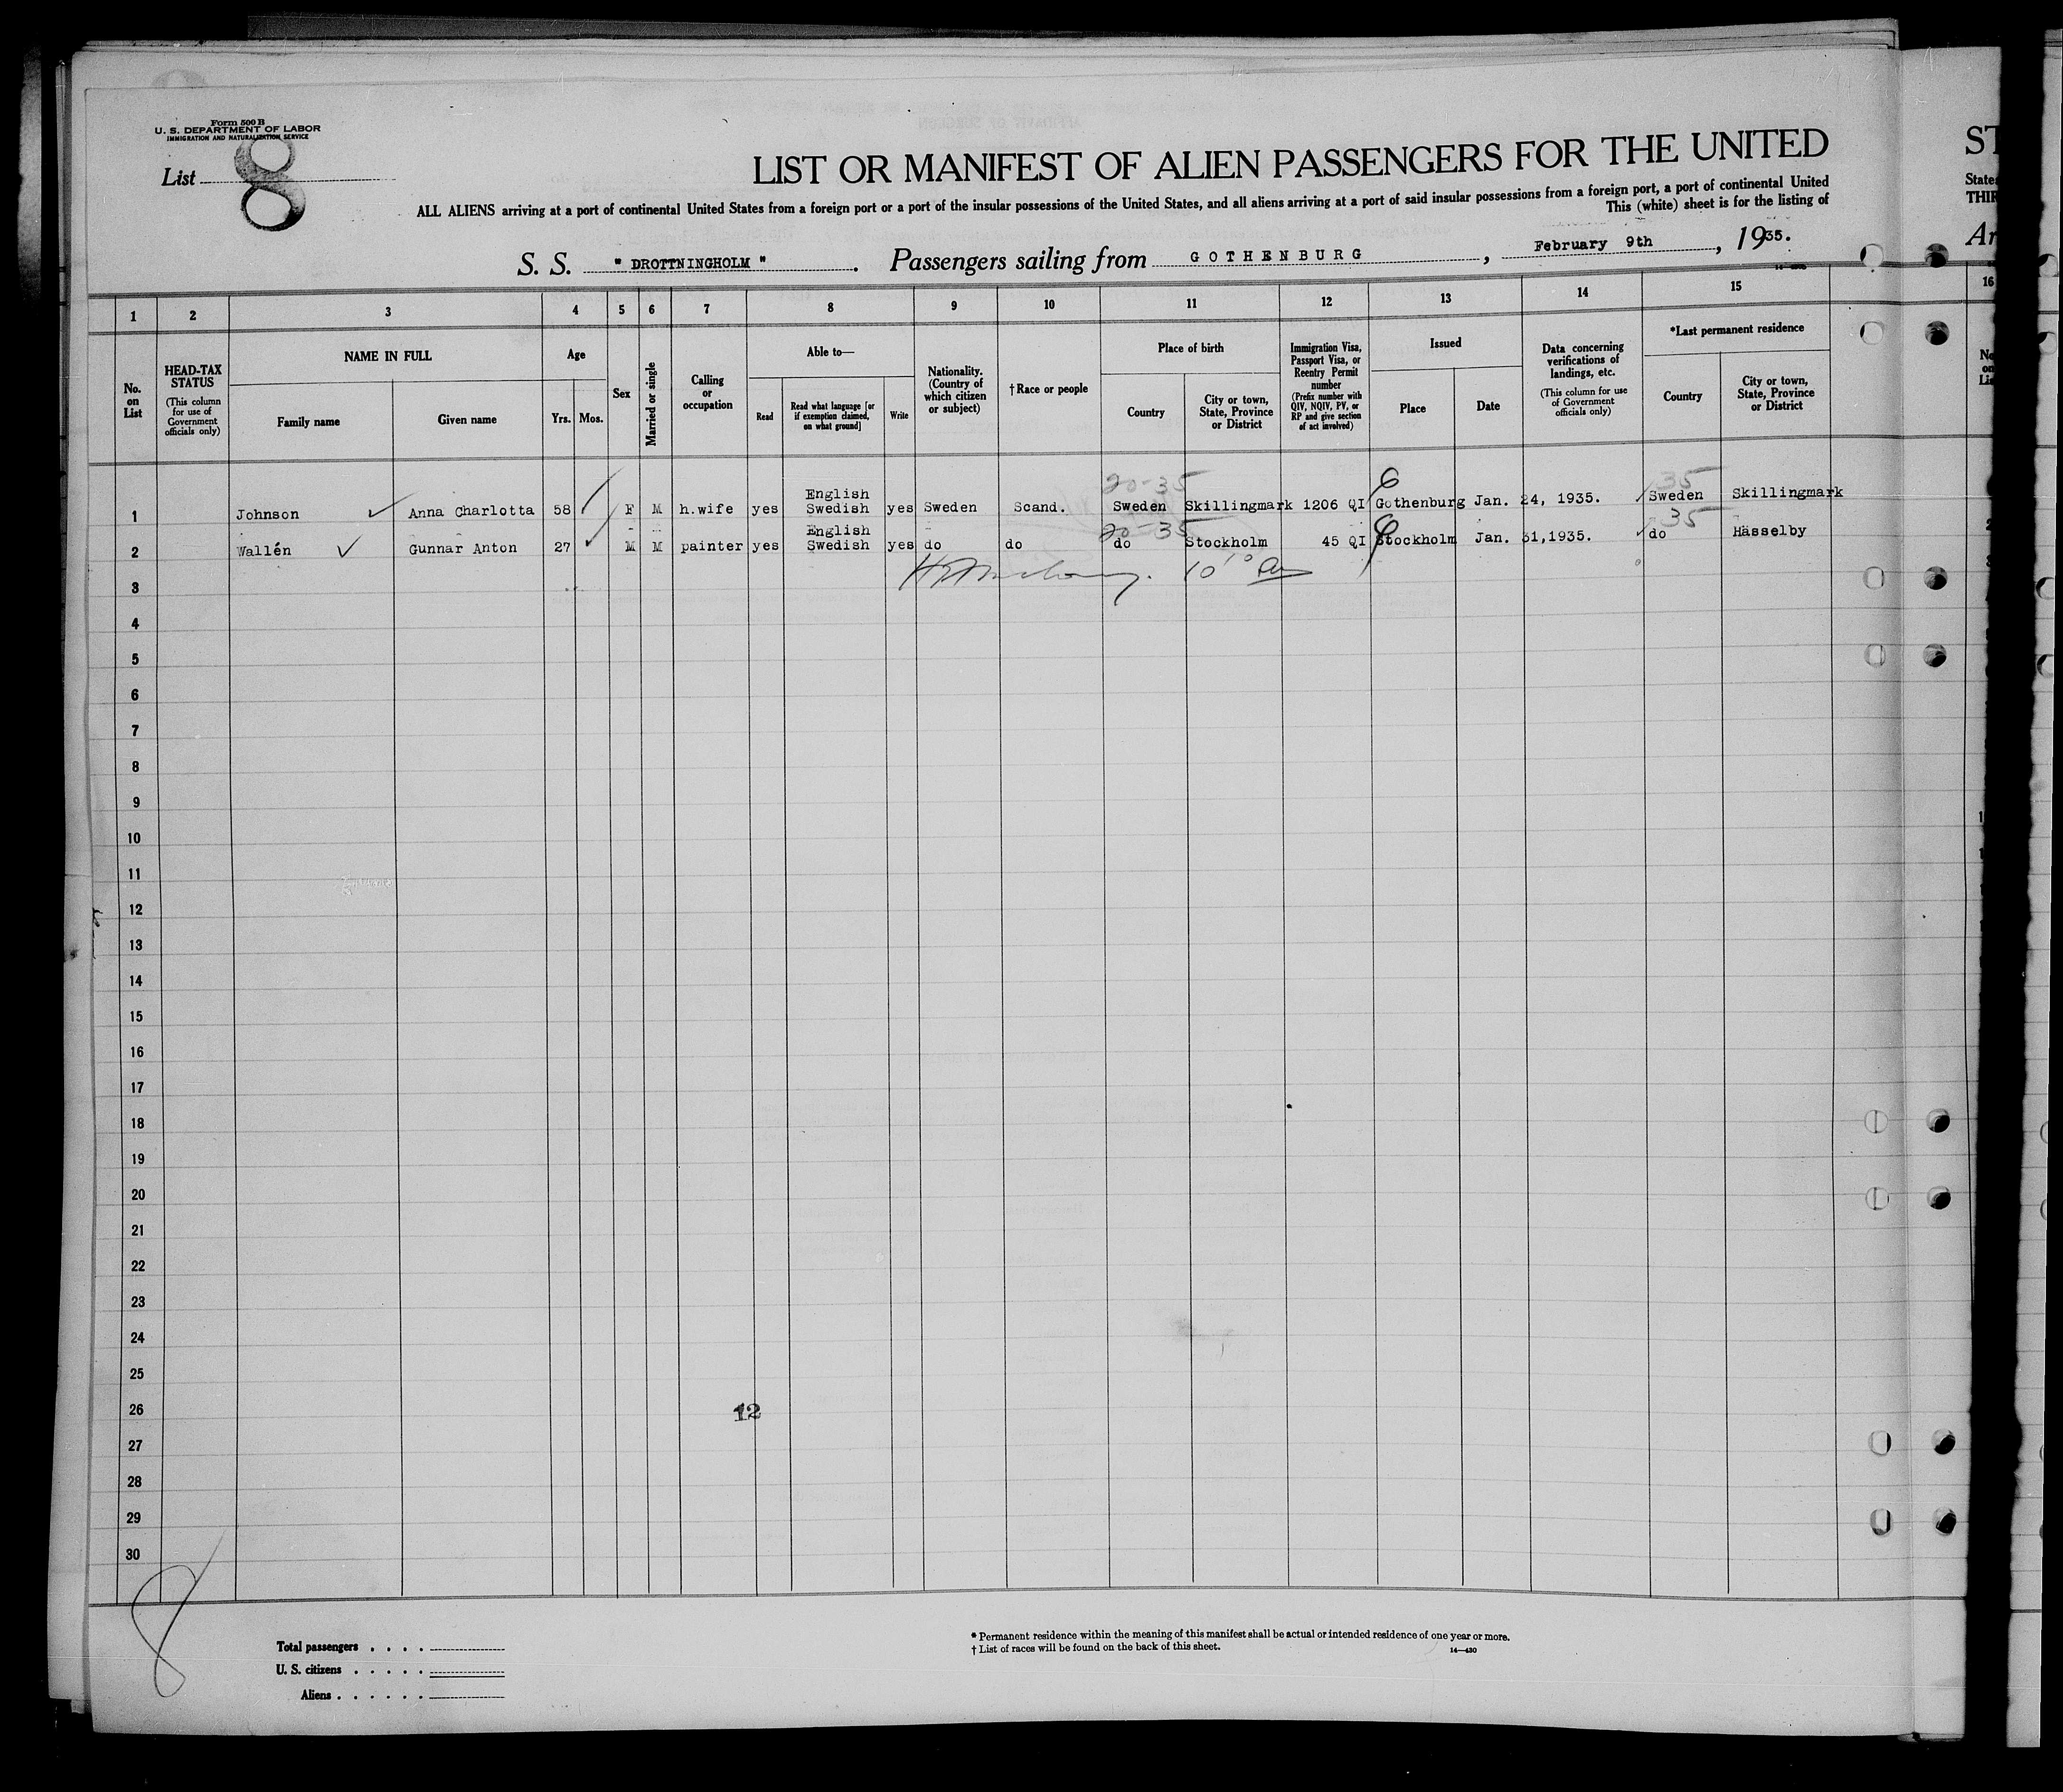 Form 500 B
U. S. DEPARTMENT OF LABOR
IMMIGRATION AND NATURALIZATION SERVICE
List 8
LIST OR MANIFEST OF ALIEN PASSENGERS FOR THE UNITED
ST
ALL ALIENS arriving at a port of continental United States from a foreign port or a port of the insular possessions of the United States, and all aliens arriving at a port of said insular possessions from a foreign port, a port of continental United
States
This (white) sheet is for the listing of
THIR
S. S. " DROTTNINGHOLM " . Passengers sailing from GOTHENBURG , February 9th , 1935.
Ar
1 2 3 4 5 6 7 8 9 10 11 12 13 14 15 16
No. on List
HEAD-TAX STATUS (This column for use of Government officials only)
NAME IN FULL
Family name
Given name
Age
Yrs. Mos.
Sex
Married or single
Calling or occupation
Able to—
Read
Read what language [or if exemption claimed, on what ground]
Write
Nationality. (Country of which citizen or subject)
†Race or people
Place of birth
Country
City or town, State, Province or District
Immigration Visa, Passport Visa, or Reentry Permit number (Prefix number with QIV, NQIV, PV, or RP and give section of act involved)
Issued
Place
Date
Data concerning verifications of landings, etc. (This column for use of Government officials only)
*Last permanent residence
Country
City or town, State, Province or District
No on Li
20-35 35
1 Johnson ✓ Anna Charlotta 58 F M h.wife yes English Swedish yes Sweden Scand. Sweden Skillingmark 1206 QI Gothenburg Jan. 24, 1935. Sweden Skillingmark
20-35 35
2 Wallén ✓ Gunnar Anton 27 M M painter yes English Swedish yes do do do Stockholm 45 QI Stockholm Jan. 31,1935. do Hässelby
3
10 10
4
5
6
7
8
9
10
11
12
13
14
15
16
17
18
19
20
21
22
23
24
25
26
12
27
28
29
30
8
Total passengers . . . .
U. S. citizens . . . . .
Aliens . . . . . .
* Permanent residence within the meaning of this manifest shall be actual or intended residence of one year or more.
† List of races will be found on the back of this sheet.
14—430